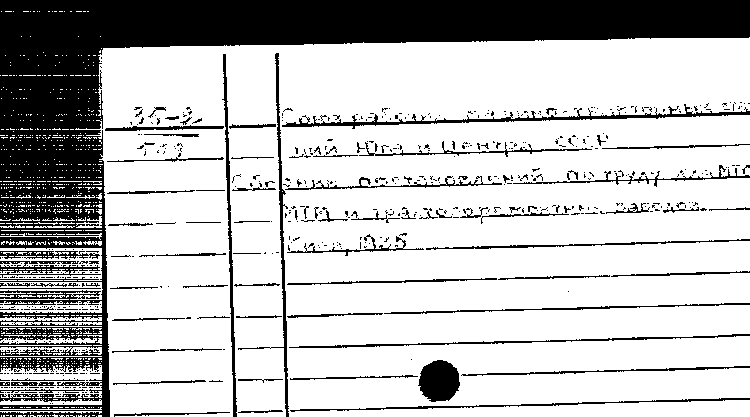 35-2
Союз рабочих машинно-тракторных
ций Юга и Центра СССР
Сборник постановлений по труду для МТС
МТМ и тракторемонтных заводов.
Киев, 1935